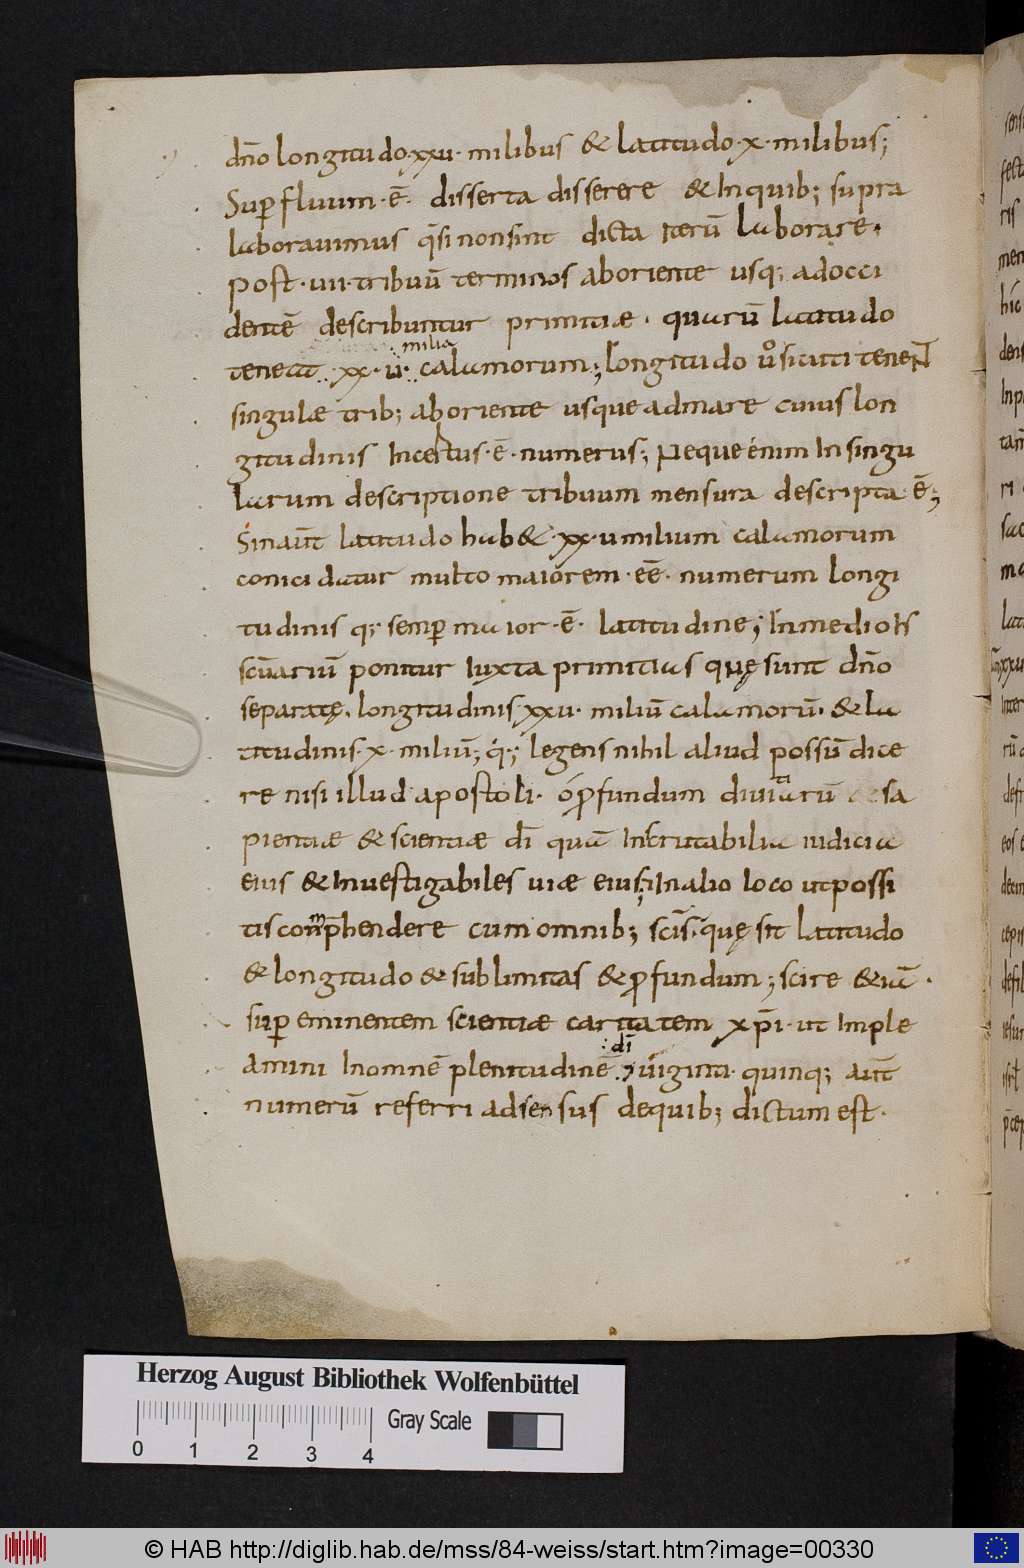 dn̄o longitudo·xxu· milibus & latitudo·x·milibus;
Sup̱fluum·ē· disserta disserere & Inquib; supra
laborauimus q̄si non sint dicta iterū laborare·
post·uii·tribuū terminos aboriente usq; adocci
dentē describuntur primitiae· quarū latitudo
milia
teneat ·xx·u· calamorum; longitudo ūo sicuti tenent
singulae trib; aboriente usque admare cuius lon
gitudinis Incertus·ē·numerus; Neque enim In singu
larum descriptione tribuum mensura descripta·ē;
Sinaūt latitudo hab&·xx·umilium calamorum
conici datur multo maiorem·eē· numerum longi
tudinis q; semp̱ maior·ē· latitudine; Inmediohis
scūarium ponitur Iuxta primitias quę sunt dn̄o
separatę· longitudinis xxu· miliū calamorū· & la
titudinis·x·miliū; legens nihil aliud possū dice
re nisi illud apostoli· op̱fundum diuitiarū sa
pientiae & scientiae dī quā Inscrutabilia iudicia
eius & Inuestigabiles uiae eius; Inalio loco utpossi
tis comp̄hendere cum omnib; scīs· quę sit latitudo
& longitudo & sublimitas & p̱fundum; scire &iā·
sup̱ eminentem scientiae caritatem xp̄i· ut Imple
dī
amini Inomnē plenitudinē; uiginti· quinq; aūt
numerū referri adsensus dequib; dictum est·
Herzog August Bibliothek Wolfenbüttel
Gray Scale
0 1 2 3 4
© HAB http://diglib.hab.de/mss/84-weiss/start.htm?image=00330